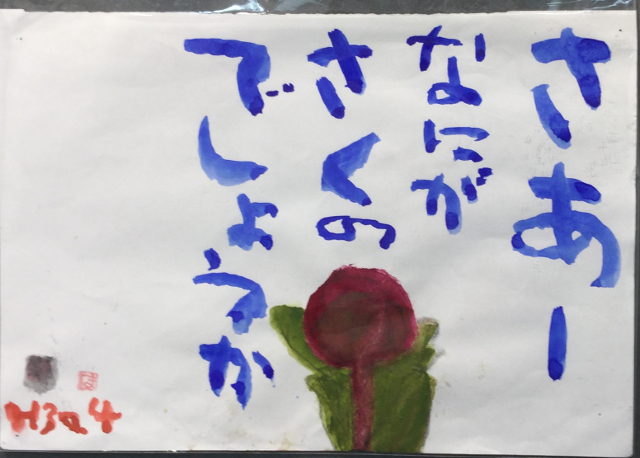 さあー
なにが
さくの
でしょうか